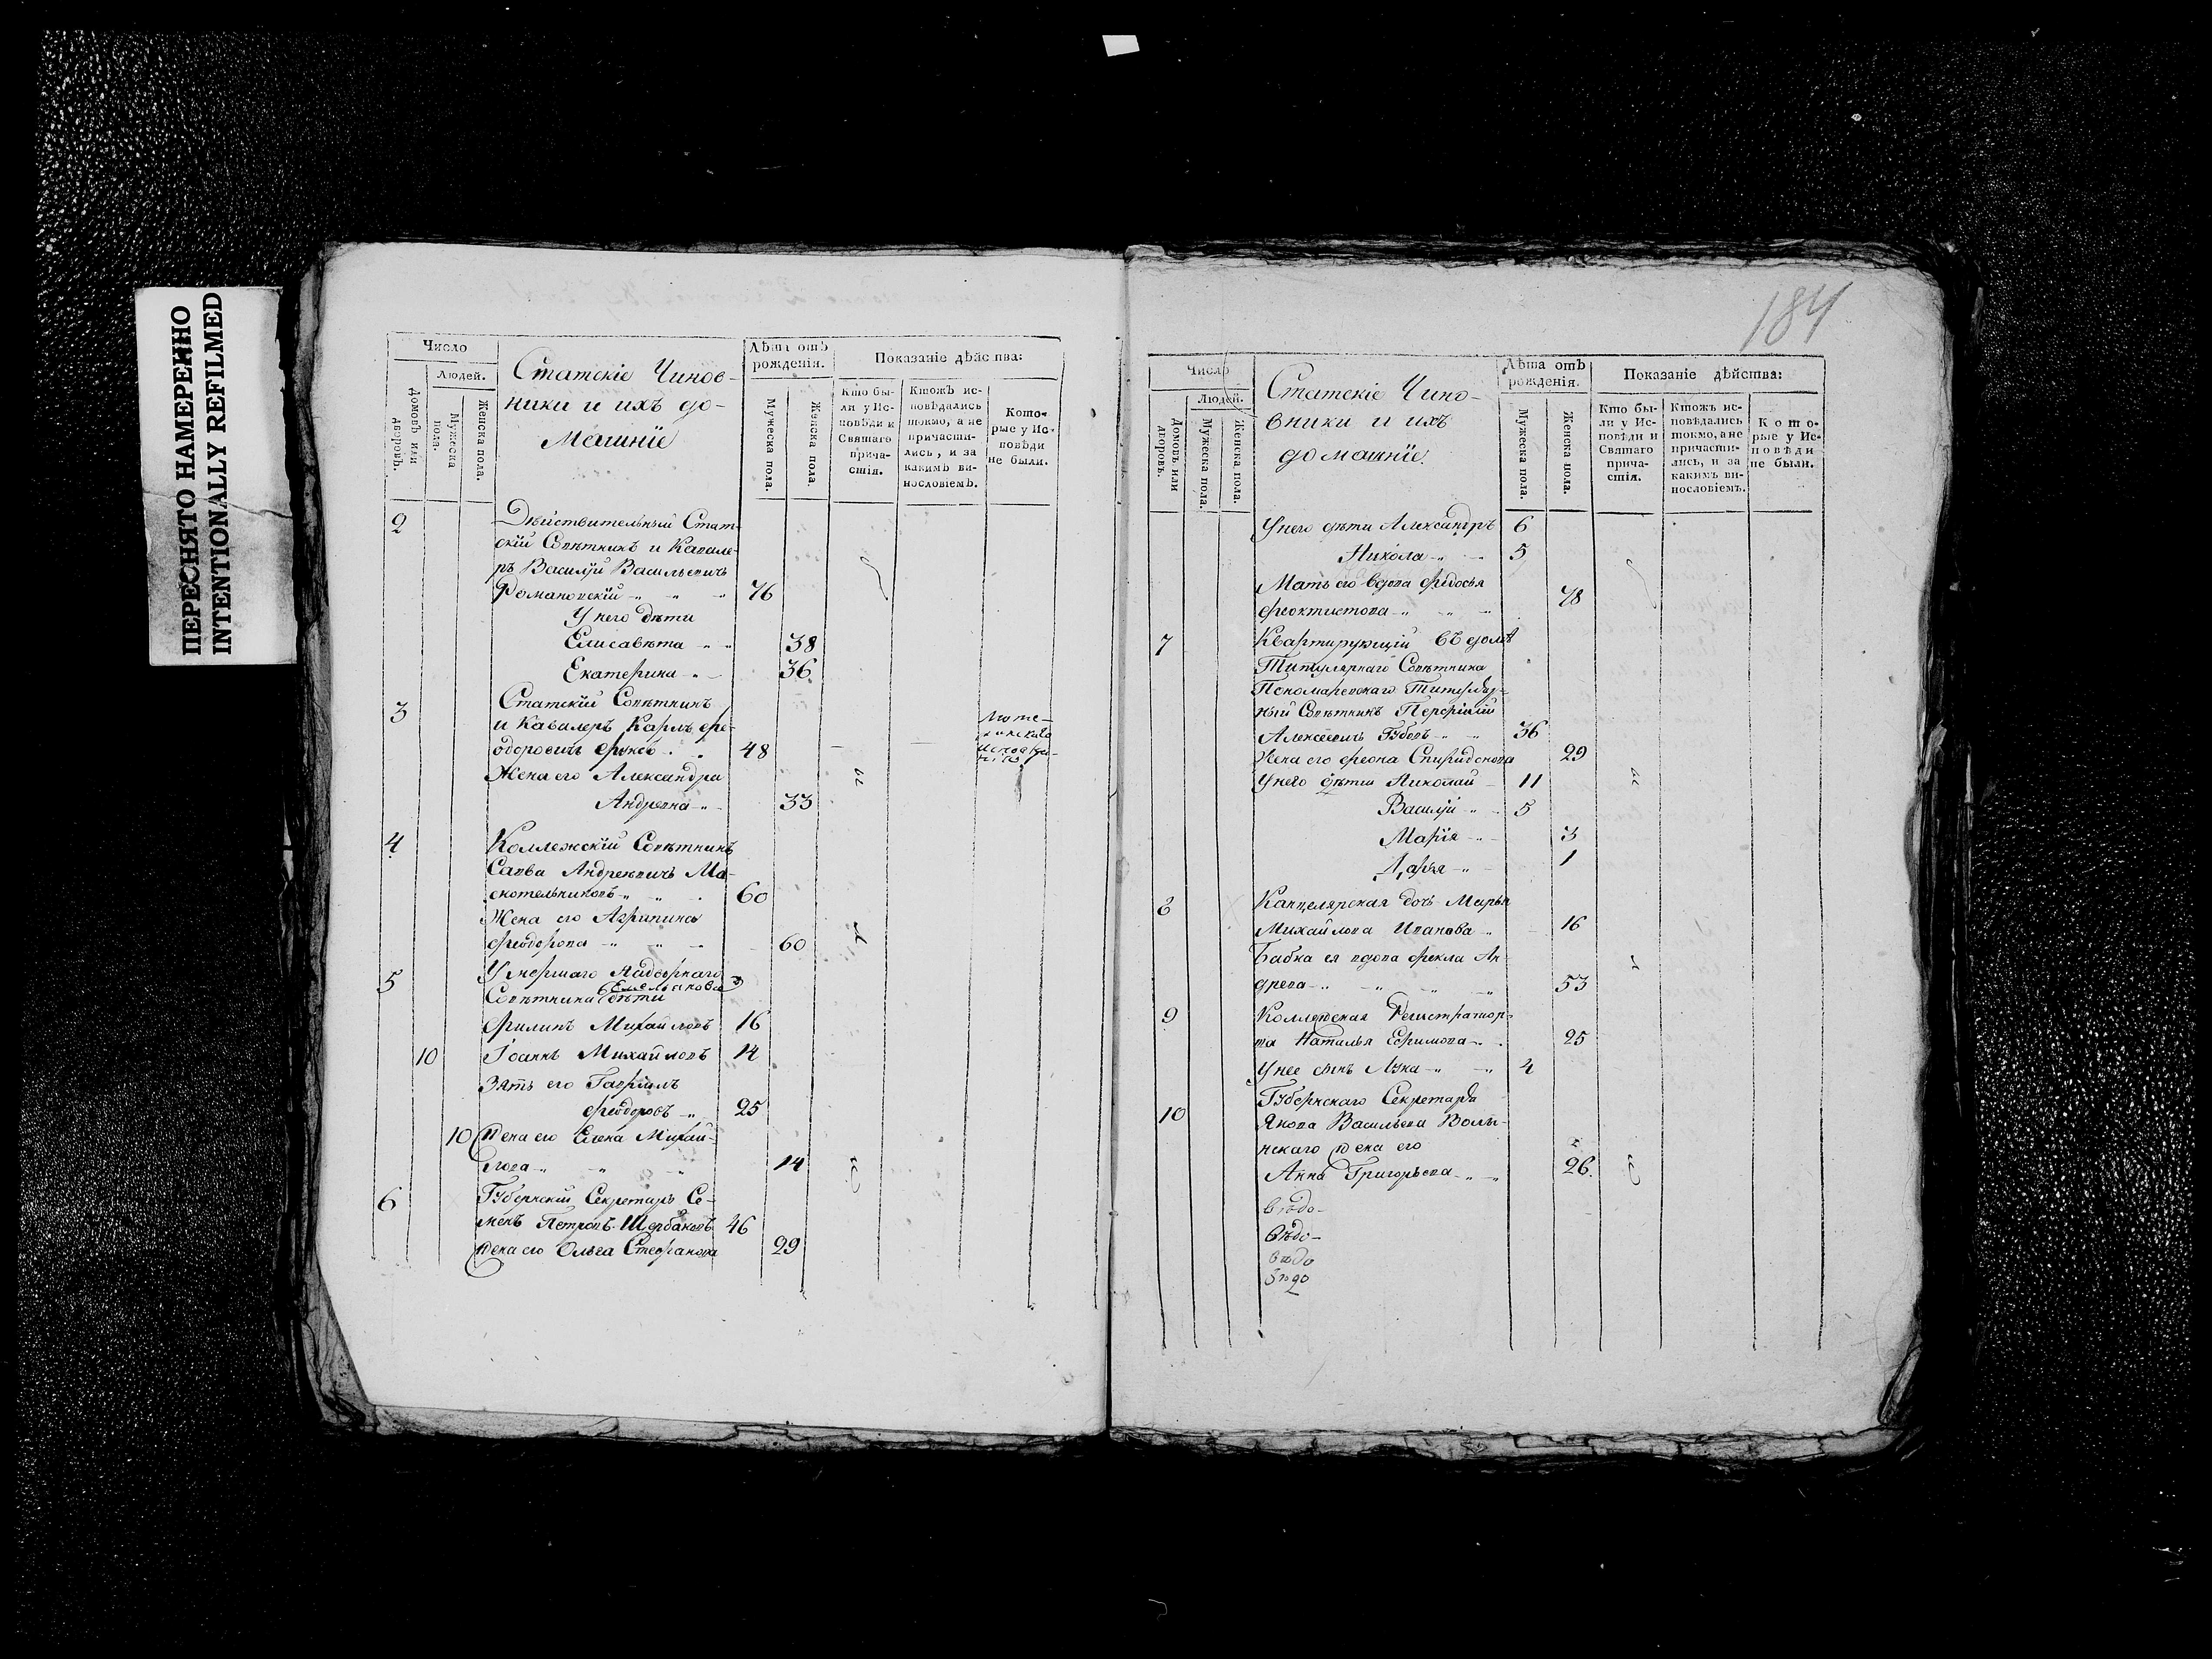 ПЕРЕСНЯТО НАМЕРЕННО
INTENTIONALLY REFILMED
Число
Людей.
Домовъ или дворовъ.
Мужеска пола.
Женска пола.
Статскіе Чинов-
ники и ихъ до-
машніе
Лѣта отъ рожденія.
Мужеска пола.
Женска пола.
Показаніе дѣйства:
Кто бы-
ли у Ис-
повѣди и
Святаго
прича-
стія.
Ктожъ ис-
повѣдались
токмо, а не
причасти-
лись, и за
какимъ ви-
нословіемъ.
Кото-
рые у Ис-
повѣди
не были.
2 Дѣйствительный Стат-
скій Совѣтникъ и Кавале-
ръ Василій Васильевичь
Романовскій 76
У него дѣти
Елисавѣта 38
Екатерина 36
3 Статскій Совѣтникъ
и Кавалеръ Карлъ Фе-
одоровичъ Фуксъ 48
Жена его Александра
Андревна 33
4 Коллежскій Совѣтникъ
Савва Андреевичь Мо-
скотельниковъ 60
Жена его Агрипина
Феодорова 60
5 Умершаго Надворнаго
Совѣтника Емельянова дѣти
Филипъ Михайловъ 16
10 Іоаннъ Михайловъ 14
Зять его Гавріилъ
Феодоровъ 25
10 Жена его Елена Михай-
лова 14
6 Губернскій Секретарь Се-
менъ Петровъ Щербаковъ 46
Жена его Ольга Стефанова 29
184
Число
Людей.
Домовъ или дворовъ.
Мужеска пола.
Женска пола.
Статскіе Чино-
вники и ихъ
домашніе.
Лѣта отъ рожденія.
Мужеска пола.
Женска пола.
Показаніе дѣйства:
Кто бы-
ли у Ис-
повѣди и
Святаго
прича-
стія.
Ктожъ ис-
повѣдались
токмо, а не
причасти-
лись, и за
какимъ ви-
нословіемъ.
Кото-
рые у Ис-
повѣди
не были.
У него дѣти Александръ 6
Никола 5
Мать его вдова Федосья
Феоктистова 78
7 Квартирующій въ домѣ
Титулярнаго Совѣтника
Пономаревскаго Титуляр-
ный Совѣтникъ Перфилій
Алексеевичь Губовъ 36
Жена его Феона Спиридонова 29
У него дѣти Николай 11
Василій 5
Марія 3
Дарья 1
8 Канцелярская дочь Марья
Михайлова Иванова 16
Бабка ея вдова Фекла Ан-
древа 53
9 Коллежская Регистратор-
ша Наталья Ефимова 25
У нее сынъ Лука 4
10 Губернскаго Секретаря
Якова Васильева Волы-
нскаго жена его
Анна Григорьева 26.